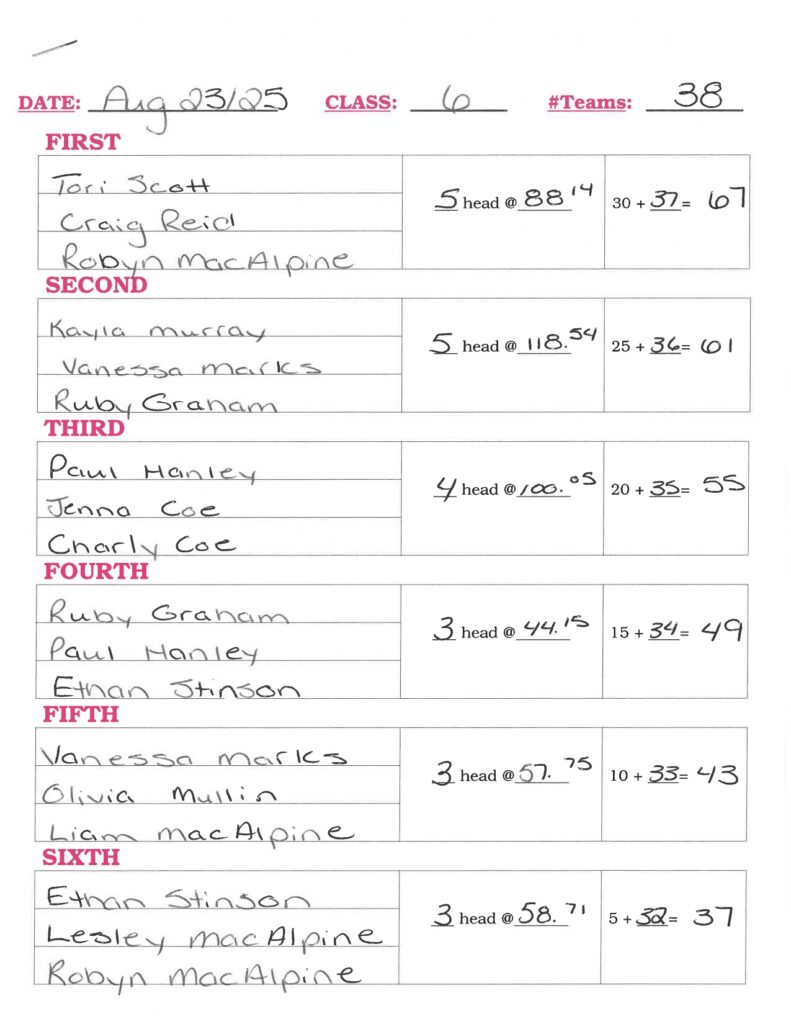 DATE: Aug 23/25 CLASS: 6 #Teams: 38
FIRST
Tori Scott
Craig Reid
Robyn MacAlpine
5 head @ 88 14
30 + 37 = 67
SECOND
Kayla Murray
Vanessa Marks
Ruby Graham
5 head @ 118.54
25 + 36 = 61
THIRD
Paul Hanley
Jenna Coe
Charly Coe
4 head @ 100.05
20 + 35 = 55
FOURTH
Ruby Graham
Paul Hanley
Ethan Stinson
3 head @ 44.15
15 + 34 = 49
FIFTH
Vanessa Marks
Olivia Mullin
Liam MacAlpine
3 head @ 57.75
10 + 33 = 43
SIXTH
Ethan Stinson
Lesley MacAlpine
Robyn MacAlpine
3 head @ 58.71
5 + 32 = 37